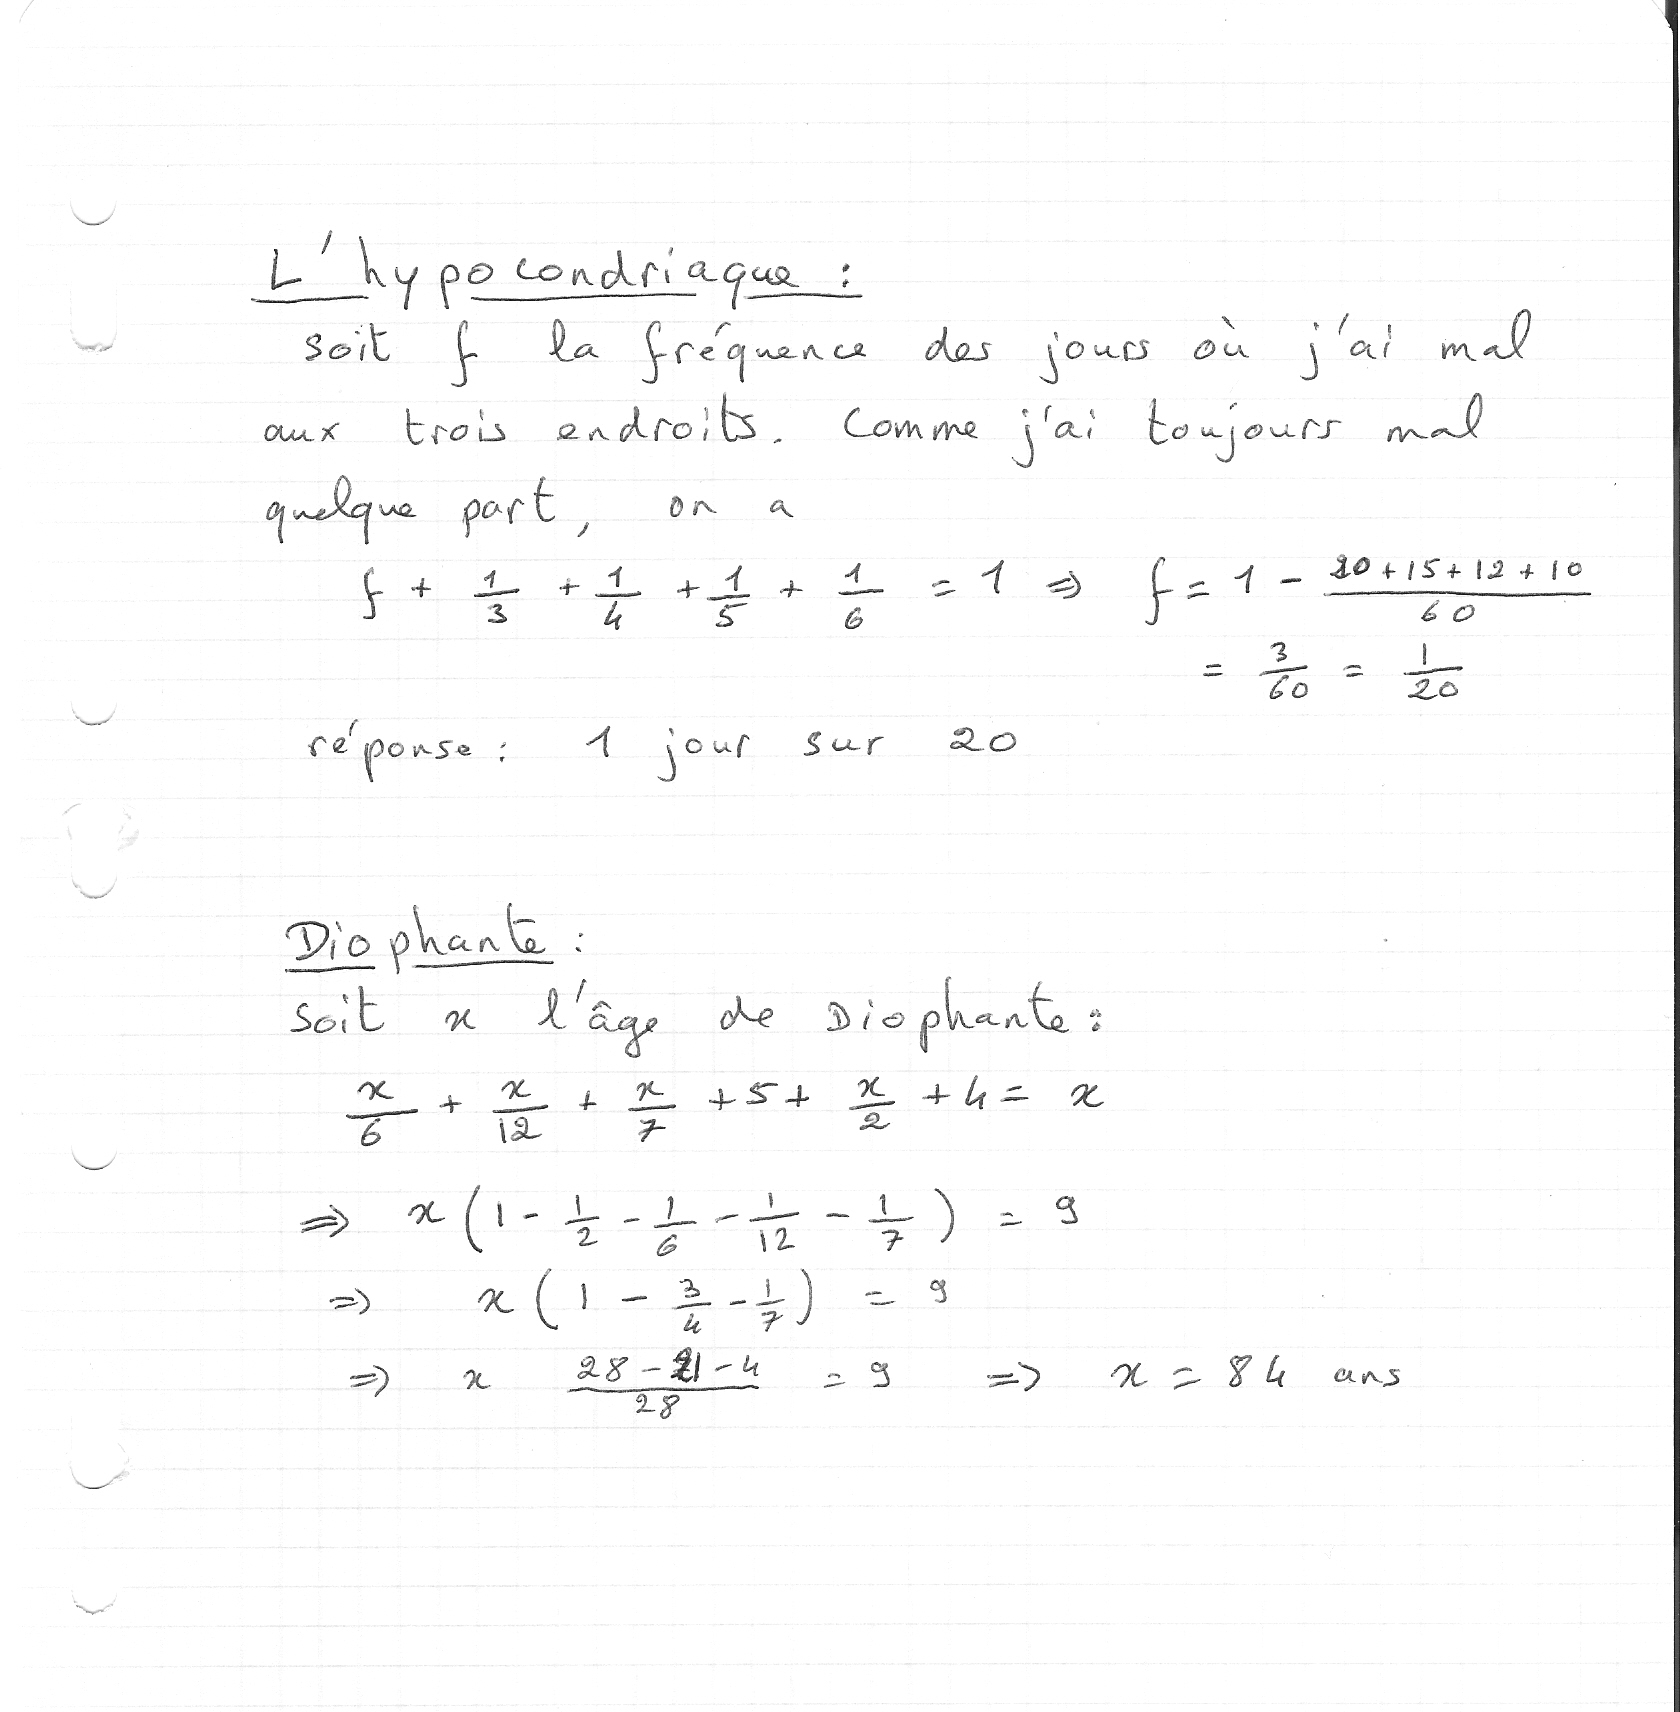 L'hypocondriaque :
soit f la fréquence des jours où j'ai mal
aux trois endroits. Comme j'ai toujours mal
quelque part, on a
f + 1/3 + 1/4 + 1/5 + 1/6 = 1 ⇒ f = 1 - (20+15+12+10)/60
= 3/60 = 1/20
réponse : 1 jour sur 20
Diophante :
soit x l'âge de Diophante :
x/6 + x/12 + x/7 + 5 + x/2 + 4 = x
⇒ x (1 - 1/2 - 1/6 - 1/12 - 1/7) = 9
⇒ x (1 - 3/4 - 1/7) = 9
⇒ x (28-21-4)/28 = 9 ⇒ x = 84 ans